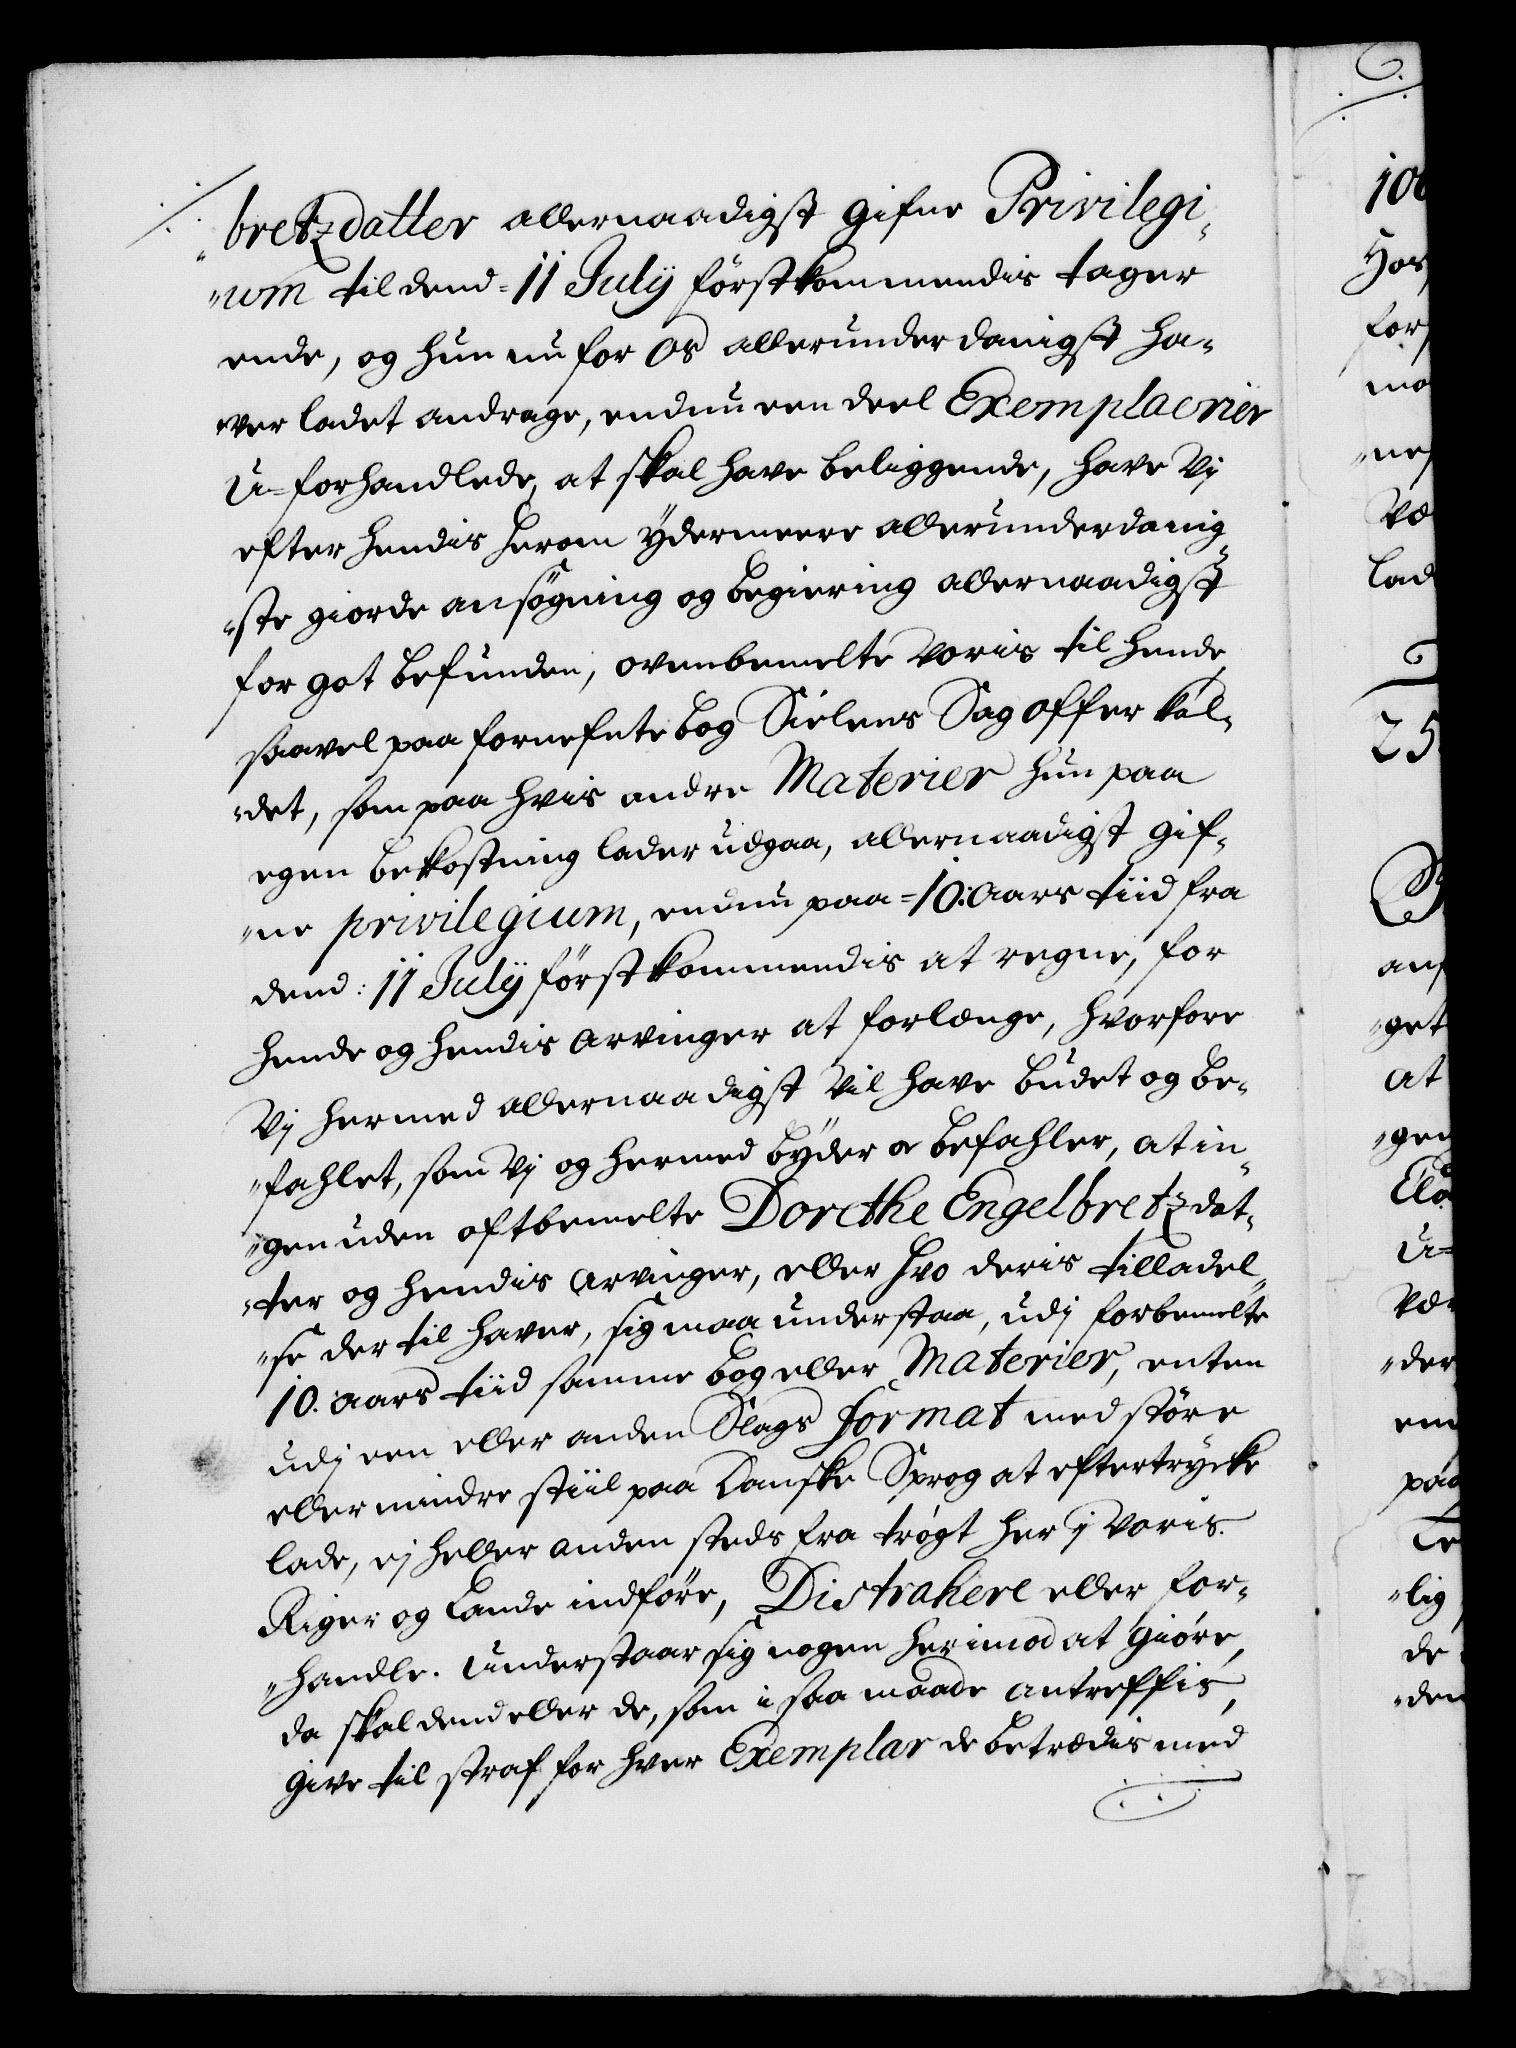 bretzdatter allernaadigst gifne Privilegi-
um til dend 11 July förstkommendis tager
ende, og hun nu for Os allerunderdanigst ha-
ver ladet andrage, endnu een deel Exemplaerier
U-forhandlede, at skal have beliggende, have Vj
efter hendis herom ÿdermeere allerunderdanig-
ste giorde ansögning og begiering allernaadigst
for got befunden, ovenbemelte Voris til hende
saavel paa fornefnte bog Sielens Sag offer kal-
det, som paa hvis andre Materier hun paa
egen bekostning lader udgaa, allernaadigst gif-
ne privilegium, endnu paa 10. Aars tiid fra
dend: 11 July förstkommendis at regne, for
hende og hendis Arvinger at forlænge, hvorfore
Vj hermed allernaadigst Vil have budet og be-
fahlet, som Vj og hermed bÿder oc befahler, at in-
gen uden oftbemelte Dorethe Engelbretzdat-
ter og hendis Arvinger, eller hvo deris tilladel-
se der til haver, sig maa understaa, udj forbemelte
10. Aars tiid samme bog eller Materier, enten
udj een eller anden Slags format med störe
eller mindre stiil paa Danske Sprog at eftertrycke
lade, ej heller anden steds fra trögt her j Voris
Riger og Lande indföre, Distrahere eller for-
handle. Understaar sig nogen herimod at giöre,
da skal dend eller de, som i saa maade antreffis,
give til straf for hver Exemplar de betrædis med
100
for
25
get
at
U-
lig
de